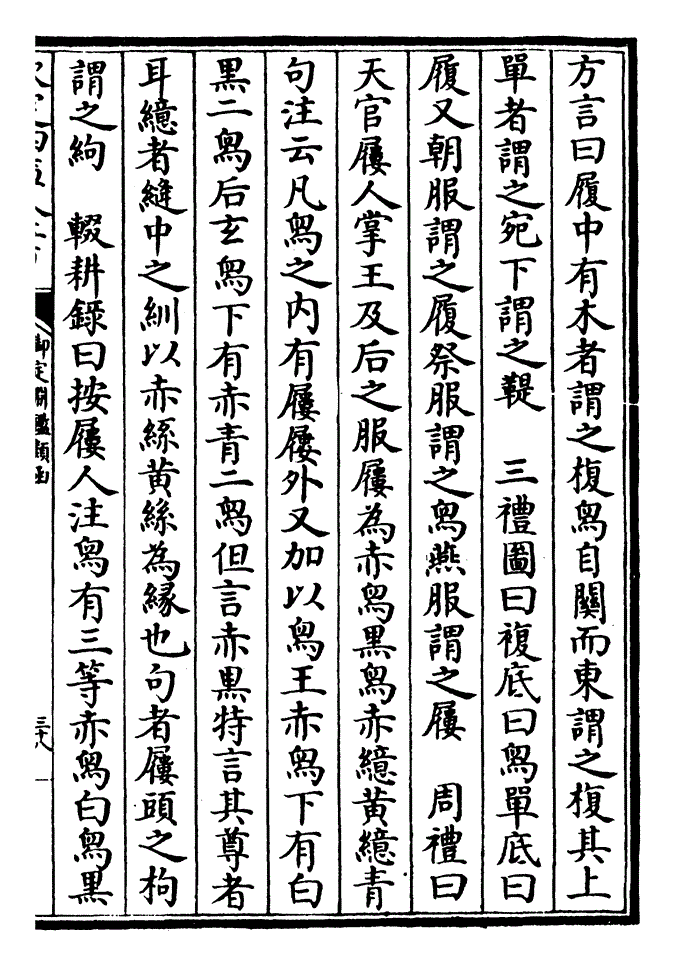 方言曰履中有木者謂之複舄自關而東謂之複其上
單者謂之宛下謂之鞮　三禮圖曰複底曰舄單底曰
履又朝服謂之履祭服謂之舄燕服謂之屨　周禮曰
天官屨人掌王及后之服屨為赤舄黒舄赤繶黄繶青
句注云凡舄之内有屨屨外又加以舄王赤舄下有白
黒二舄后玄舄下有赤青二舄但言赤黒特言其尊者
耳繶者縫中之紃以赤絲黄絲為縁也句者屨頭之枸
謂之絇　輟耕錄曰按屨人注舄有三等赤舄白舄黒
御定淵鑑類函
三十八